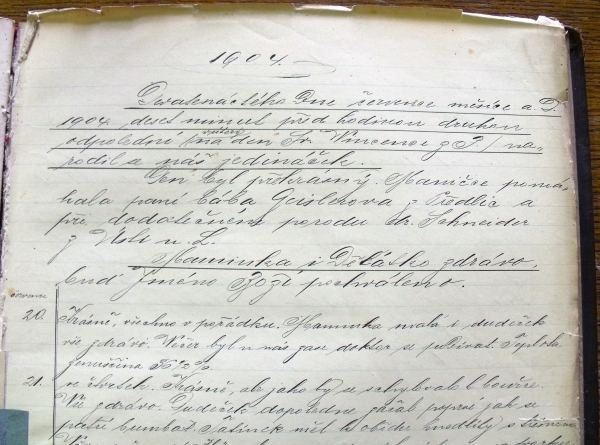 1904.
Dvatenáctého Dne července měsíce a. D.
1904 deset minut před hodinou druhou
odpolední (na den Sv. Vincence z P.) na-
večeru
rodil se náš jedináček.
Den byl překrásný. Mamince pomá-
hala paní bába Geislerova z Předlic a
při dodatečném porodu dr. Schneider
z Ústí n. L.
Maminka i Děťátko zdrávo,
bud Jméno Boží pochváleno.
července
20. Krásně, všechno v pořádku. Maminka malá i dudeček
vše zdrávo. Večer byl u nás zase doktor se podívat. Teplota
21. ve čtvrtek. Krásně, ale jako by se schylovalo k bouřce.
Vše zdrávo. Dudeček dopoledne
Tatínek měl k obědu knedlíky s